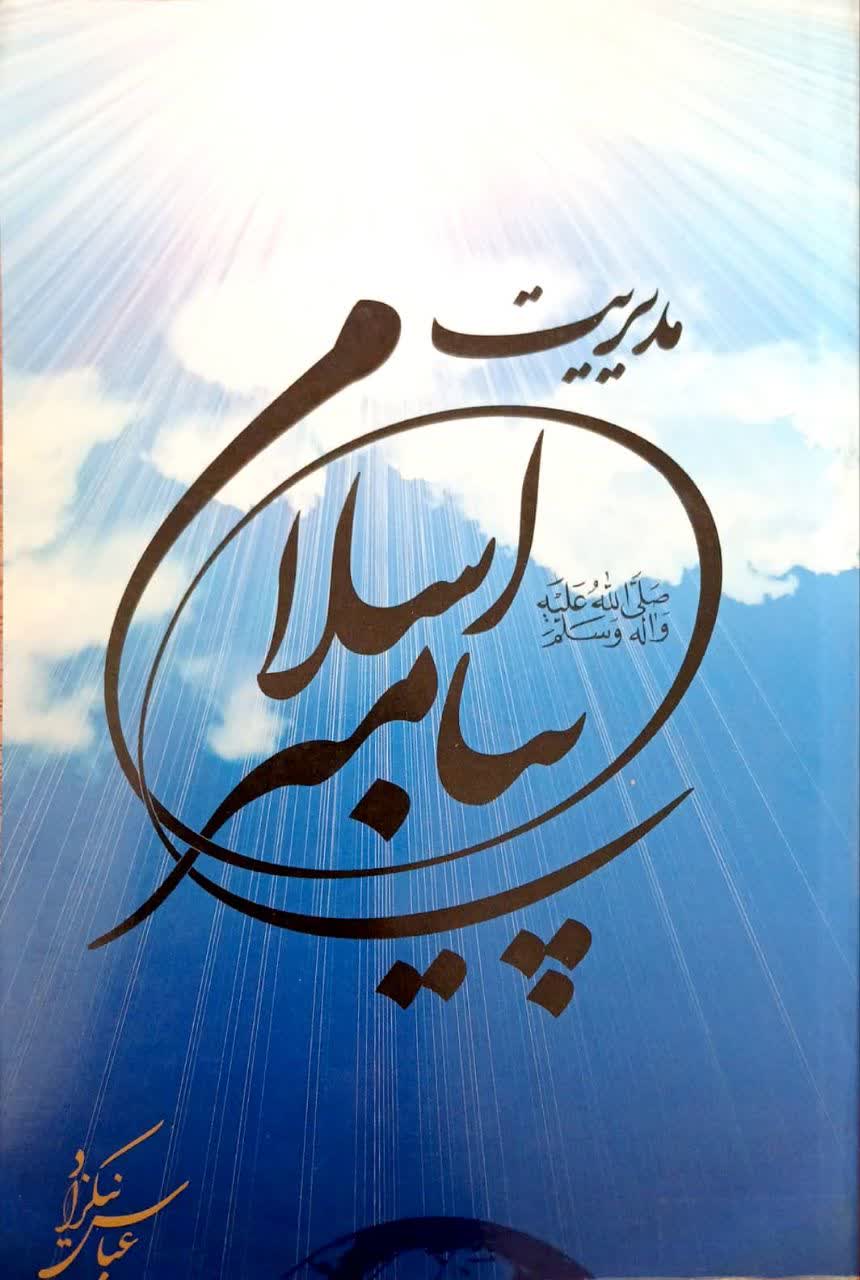 مدیریت
پیامبر اسلام
صَلَّی اللهُ عَلَیْهِ
وَآلِهِ وَسَلَّمَ
عباس نیکزاد